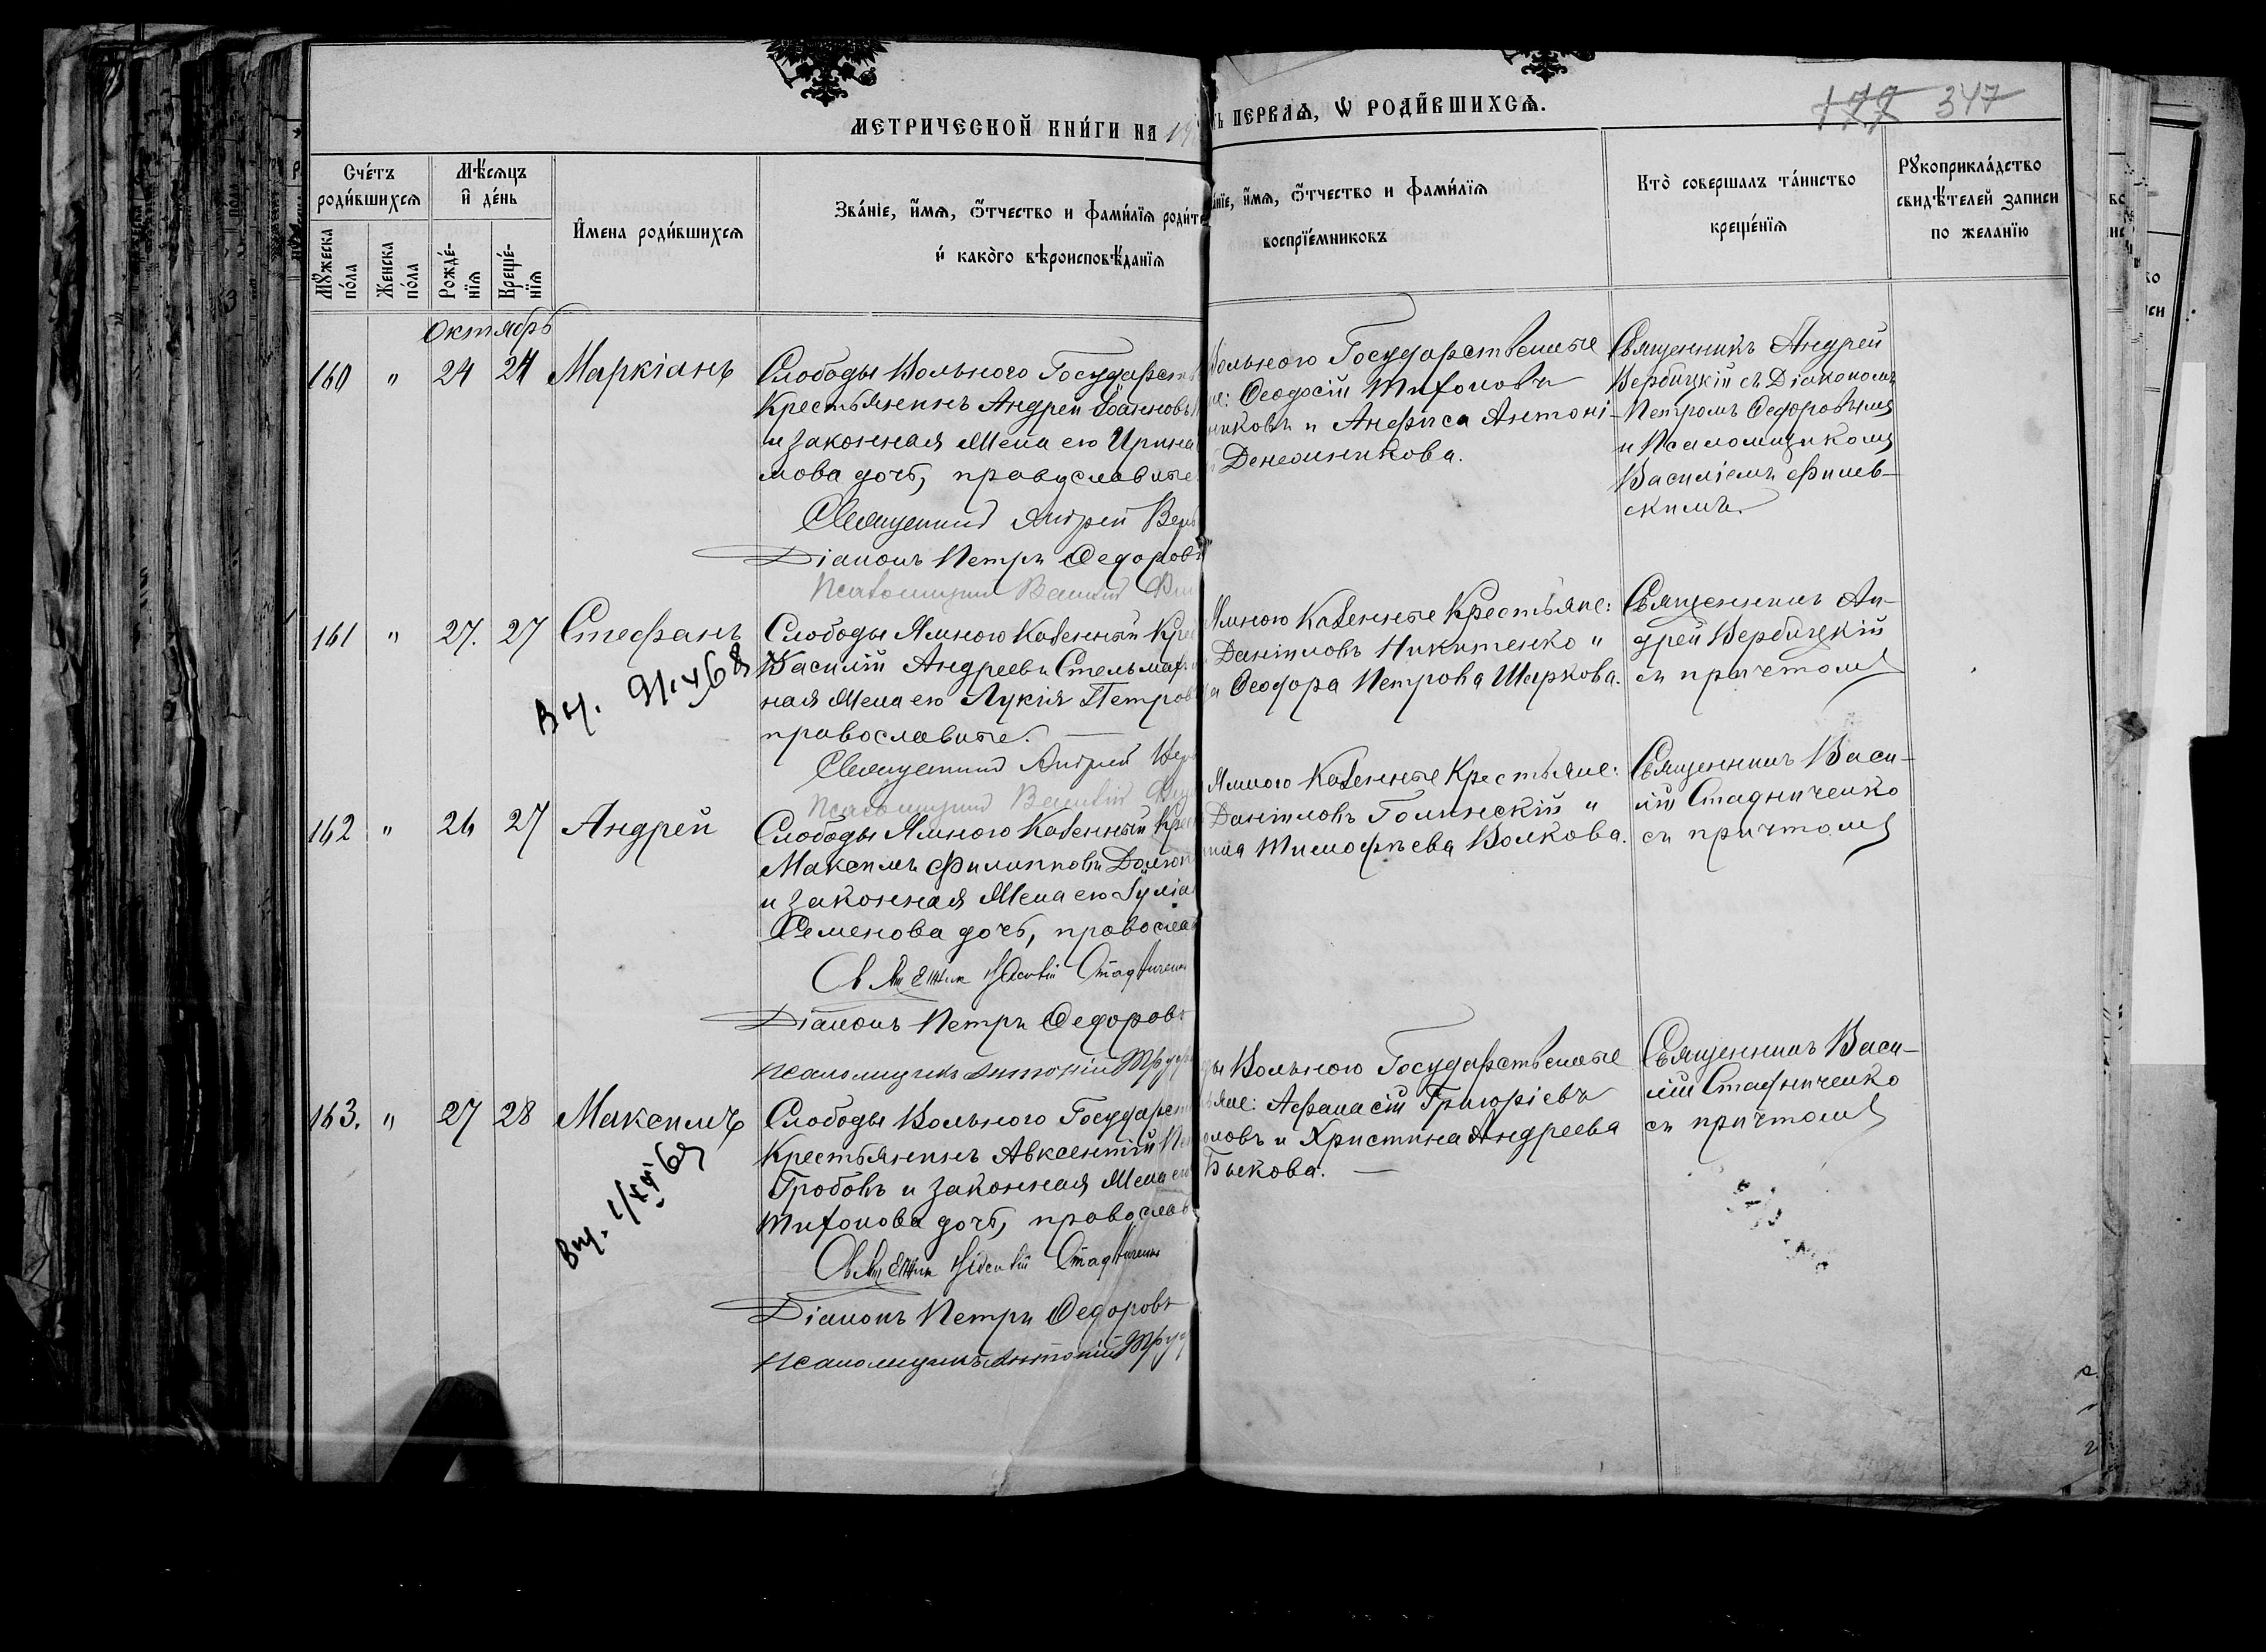 МЕТРИЧЕСКОЙ КНИ́ГИ НА 19
ПЕРВАѦ, Ѡ РОДИ́ВШИХСѦ.
177 347
Сче́тъ роди́вшихсѧ
Мꙋ́жеска по́ла
Же́нска по́ла
Мѣ́сѧцъ и де́нь
Рожде́-нїѧ
Креще́-нїѧ
И҆мена роди́вшихсѧ
Зва́нїе, и҆́мѧ, ѻ҆́тчество и фами́лїѧ
и҆ како́го вѣроисповѣ́данїѧ
и҆́мѧ, ѻ҆́тчество и фами́лїѧ
воспрїе́мниковъ
Кто̀ соверша́лъ та́инство
креще́нїѧ
Рꙋкоприкла́дство
свидѣ́телей записи
по жела́нїю
Октябрь
160 " 24 24 Маркіанъ
Слободы Вольного Государств
Крестьянинъ Андрей Іоанновъ
и законная жена его Ирина
мова дочь, православные
Священник Андрей Верб
Діаконъ Петръ Федоровъ
Псаломщик Василій
Вольного Государственные
Феодосій Тихоновъ
никовъ и Анфиса Антоні-
Денежникова.
Священникъ Андрей
Вербицкій съ Діакономъ
Петромъ Федоровымъ
и Псаломщикомъ
Василіемъ Филев-
скимъ.
161 " 27. 27 Стефанъ
Слободы Ямного Казенный Крес
Василій Андреевъ Стельмах
ная жена его Лукія Петров
православные.
Священник Андрей Верб
Псаломщик Василій
Ямного Казенные Крестьяне:
Даніиловъ Никитенко "
Феодора Петрова Шаркова.
Священникъ Ан-
дрей Вербицкій
съ причтомъ
162 " 26 27 Андрей
Слободы Ямного Казенный Крес
Максимъ Филипповъ
и законная жена его Іуліа
Семенова дочь, православ
Священник Василій Стадниченко
Діаконъ Петръ Федоровъ
Псаломщикъ Антоній
Ямного Казенные Крестьяне:
Даніиловъ Голинскій "
Тимофѣева Волкова.
Священникъ Васи-
лій Стадниченко
съ причтомъ
163. " 27 28 Максимъ
Слободы Вольного Государст
Крестьянинъ Авксентій
Гробовъ и законная жена его
Тихонова дочь, православ
Священник Василій Стадниченко
Діаконъ Петръ Федоровъ
Псаломщикъ Антоній
Вольного Государственные
Афанасій Григоріевъ
и Христина Андреева
Быкова.
Священникъ Васи-
лій Стадниченко
съ причтомъ